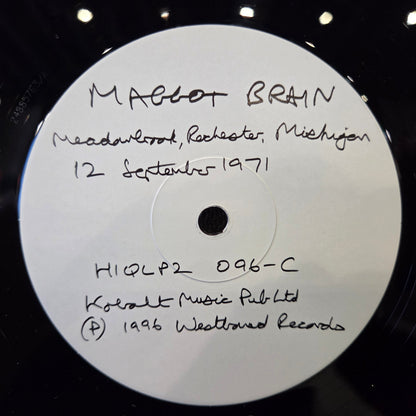 MAGGOT BRAIN
Meadowbrook, Rochester, Michigan
12 September 1971
HIQLP2 096-C
Kobalt Music Pub Ltd
(P) 1996 Westbound Records